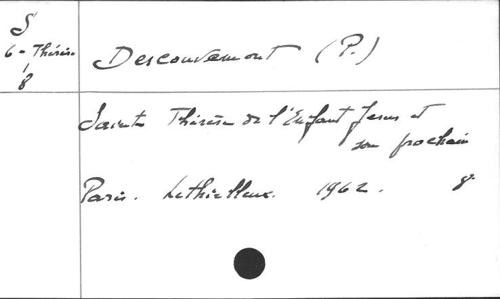 S
6 - Thérèse
/
8
Descouvemont (P.)
Sainte Thérèse de l'Enfant Jesus et
son prochain
Paris. Lethielleux. 1962. 8°